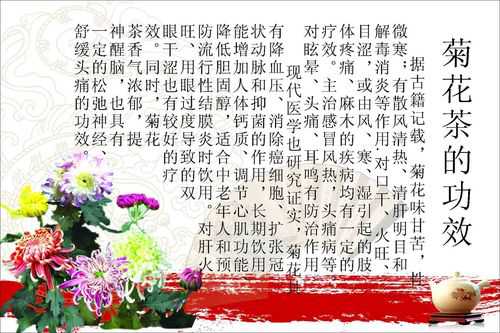 菊花茶的功效
据古籍记载，菊花味甘苦，性
微寒；有散风清热、清肝明目和
解毒消炎等作用。对口干、火旺、
目涩，或由风、寒、湿引起的肢
体疼痛、麻木的疾病均有一定的
疗效。主治感冒风热，头痛病等
对眩晕、头痛、耳鸣有防治作用
现代医学也研究证实，菊花具
有降血压、消除癌细胞、扩张冠
状动脉和抑菌的作用，长期饮用
能增加人体钙质、调节心肌功能
降低胆固醇，适合中老年人和预
防流行性结膜炎时饮用。对肝火
旺、用眼过度导致的双
眼干涩也有较好的疗
效。同时，菊花
茶香气浓郁，提
神醒脑，也具有
一定的松弛神经、
舒缓头痛的功效。